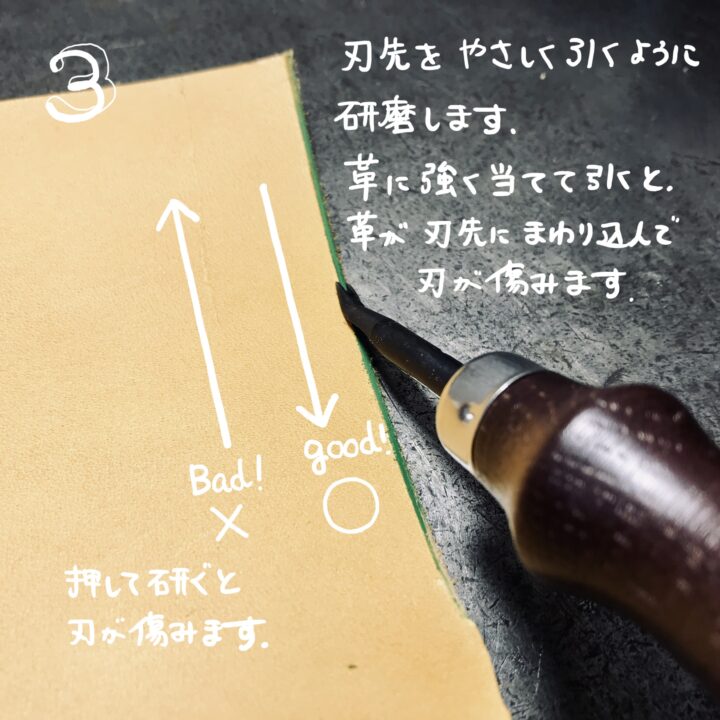 3
刃先を やさしく引くように
研磨します.
革に強く当てて引くと.
革が刃先にまわり込んで
刃が傷みます.
Bad!
×
good!
○
押して研ぐと
刃が傷みます.